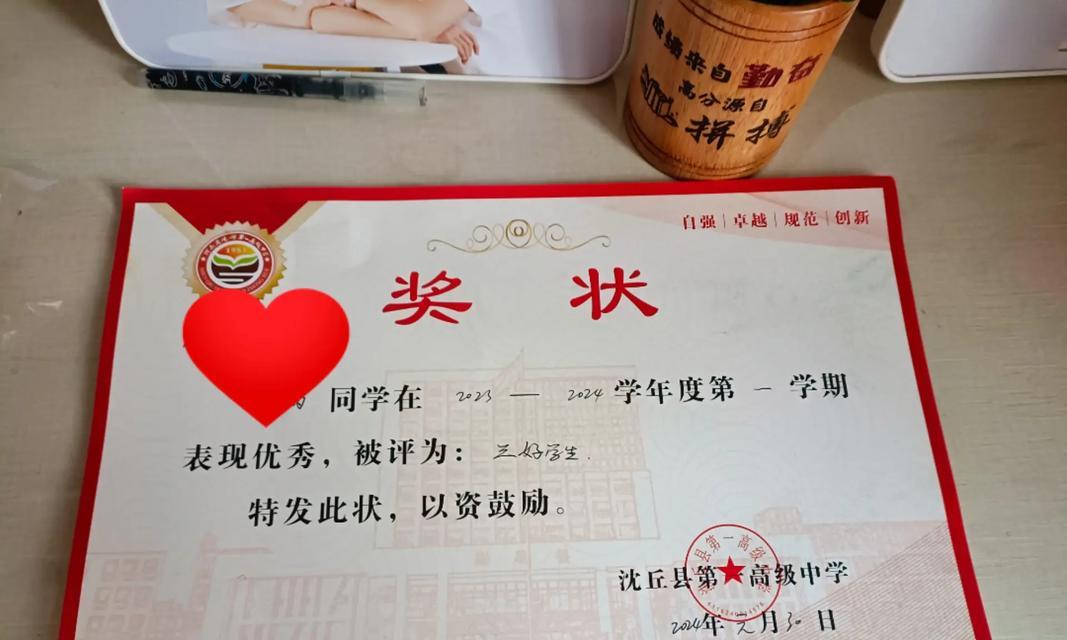 成绩来自勤奋
高分源自
拼搏
自强｜卓越｜规范｜创新
1951
奖 状
同学在 2023 — 2024 学年度第 一 学期
表现优秀，被评为： 三好学生.
特发此状，以资鼓励。
沈丘县第一高级中学
2024年 元月30日